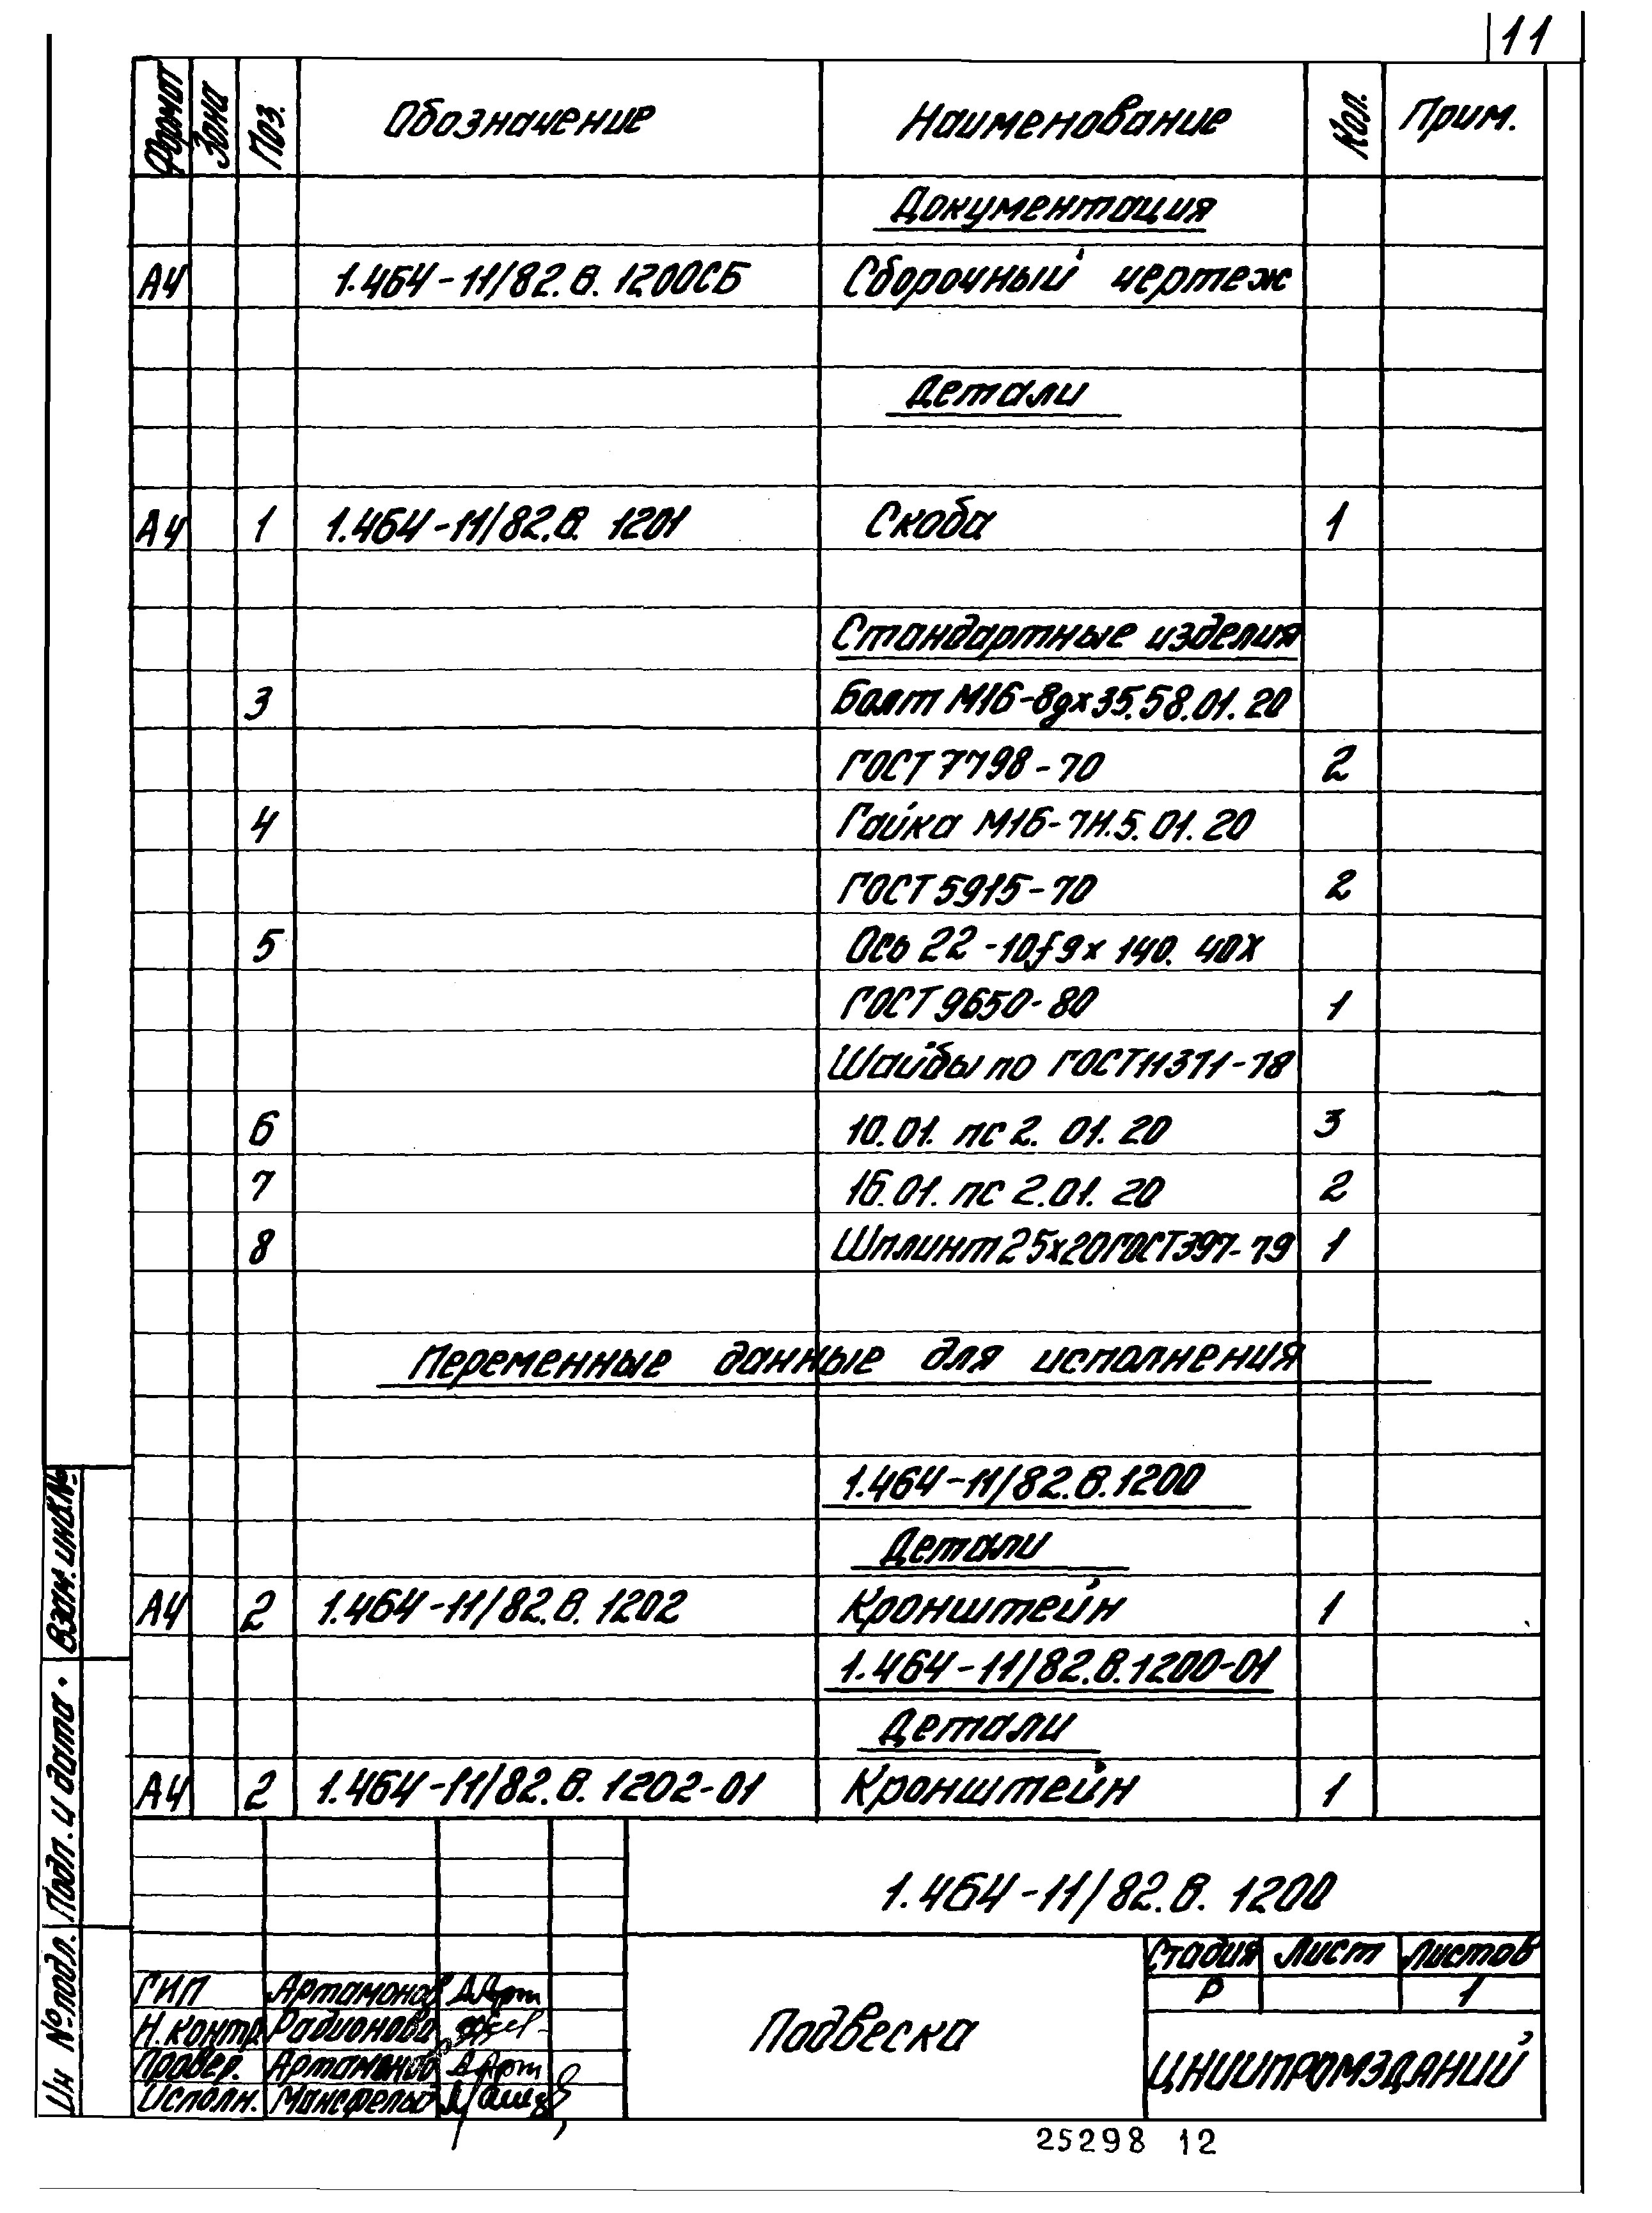 11
Формат Зона Поз. Обозначение Наименование Кол. Прим.
Документация
А4 1.464-11/82.В. 1200СБ Сборочный чертеж
Детали
А4 1 1.464-11/82.В. 1201 Скоба 1
Стандартные изделия
3 Болт М16-8gх35.58.01.20
ГОСТ 7798-70 2
4 Гайка М16-7Н.5.01.20
ГОСТ 5915-70 2
5 Ось 22-10f9х 140. 40Х
ГОСТ 9650-80 1
Шайбы по ГОСТ11371-78
6 10.01. пс 2. 01. 20 3
7 16.01. пс 2.01. 20 2
8 Шплинт 25х20 ГОСТ397-79 1
Переменные данные для исполнения
1.464-11/82.В.1200
Детали
А4 2 1.464-11/82.В. 1202 Кронштейн 1
1.464-11/82.В.1200-01
Детали
А4 2 1.464-11/82.В. 1202-01 Кронштейн 1
Взам. инв.№
Подп. и дата
Ин № подл.
1.464-11/82.В. 1200
Стадия Лист Листов
Р 1
ГИП Артамонов
Н.контр. Радионова
Провер. Артамонов
Исполн. Мансфельд
Подвеска
ЦНИИПРОМЗДАНИЙ
25298 12